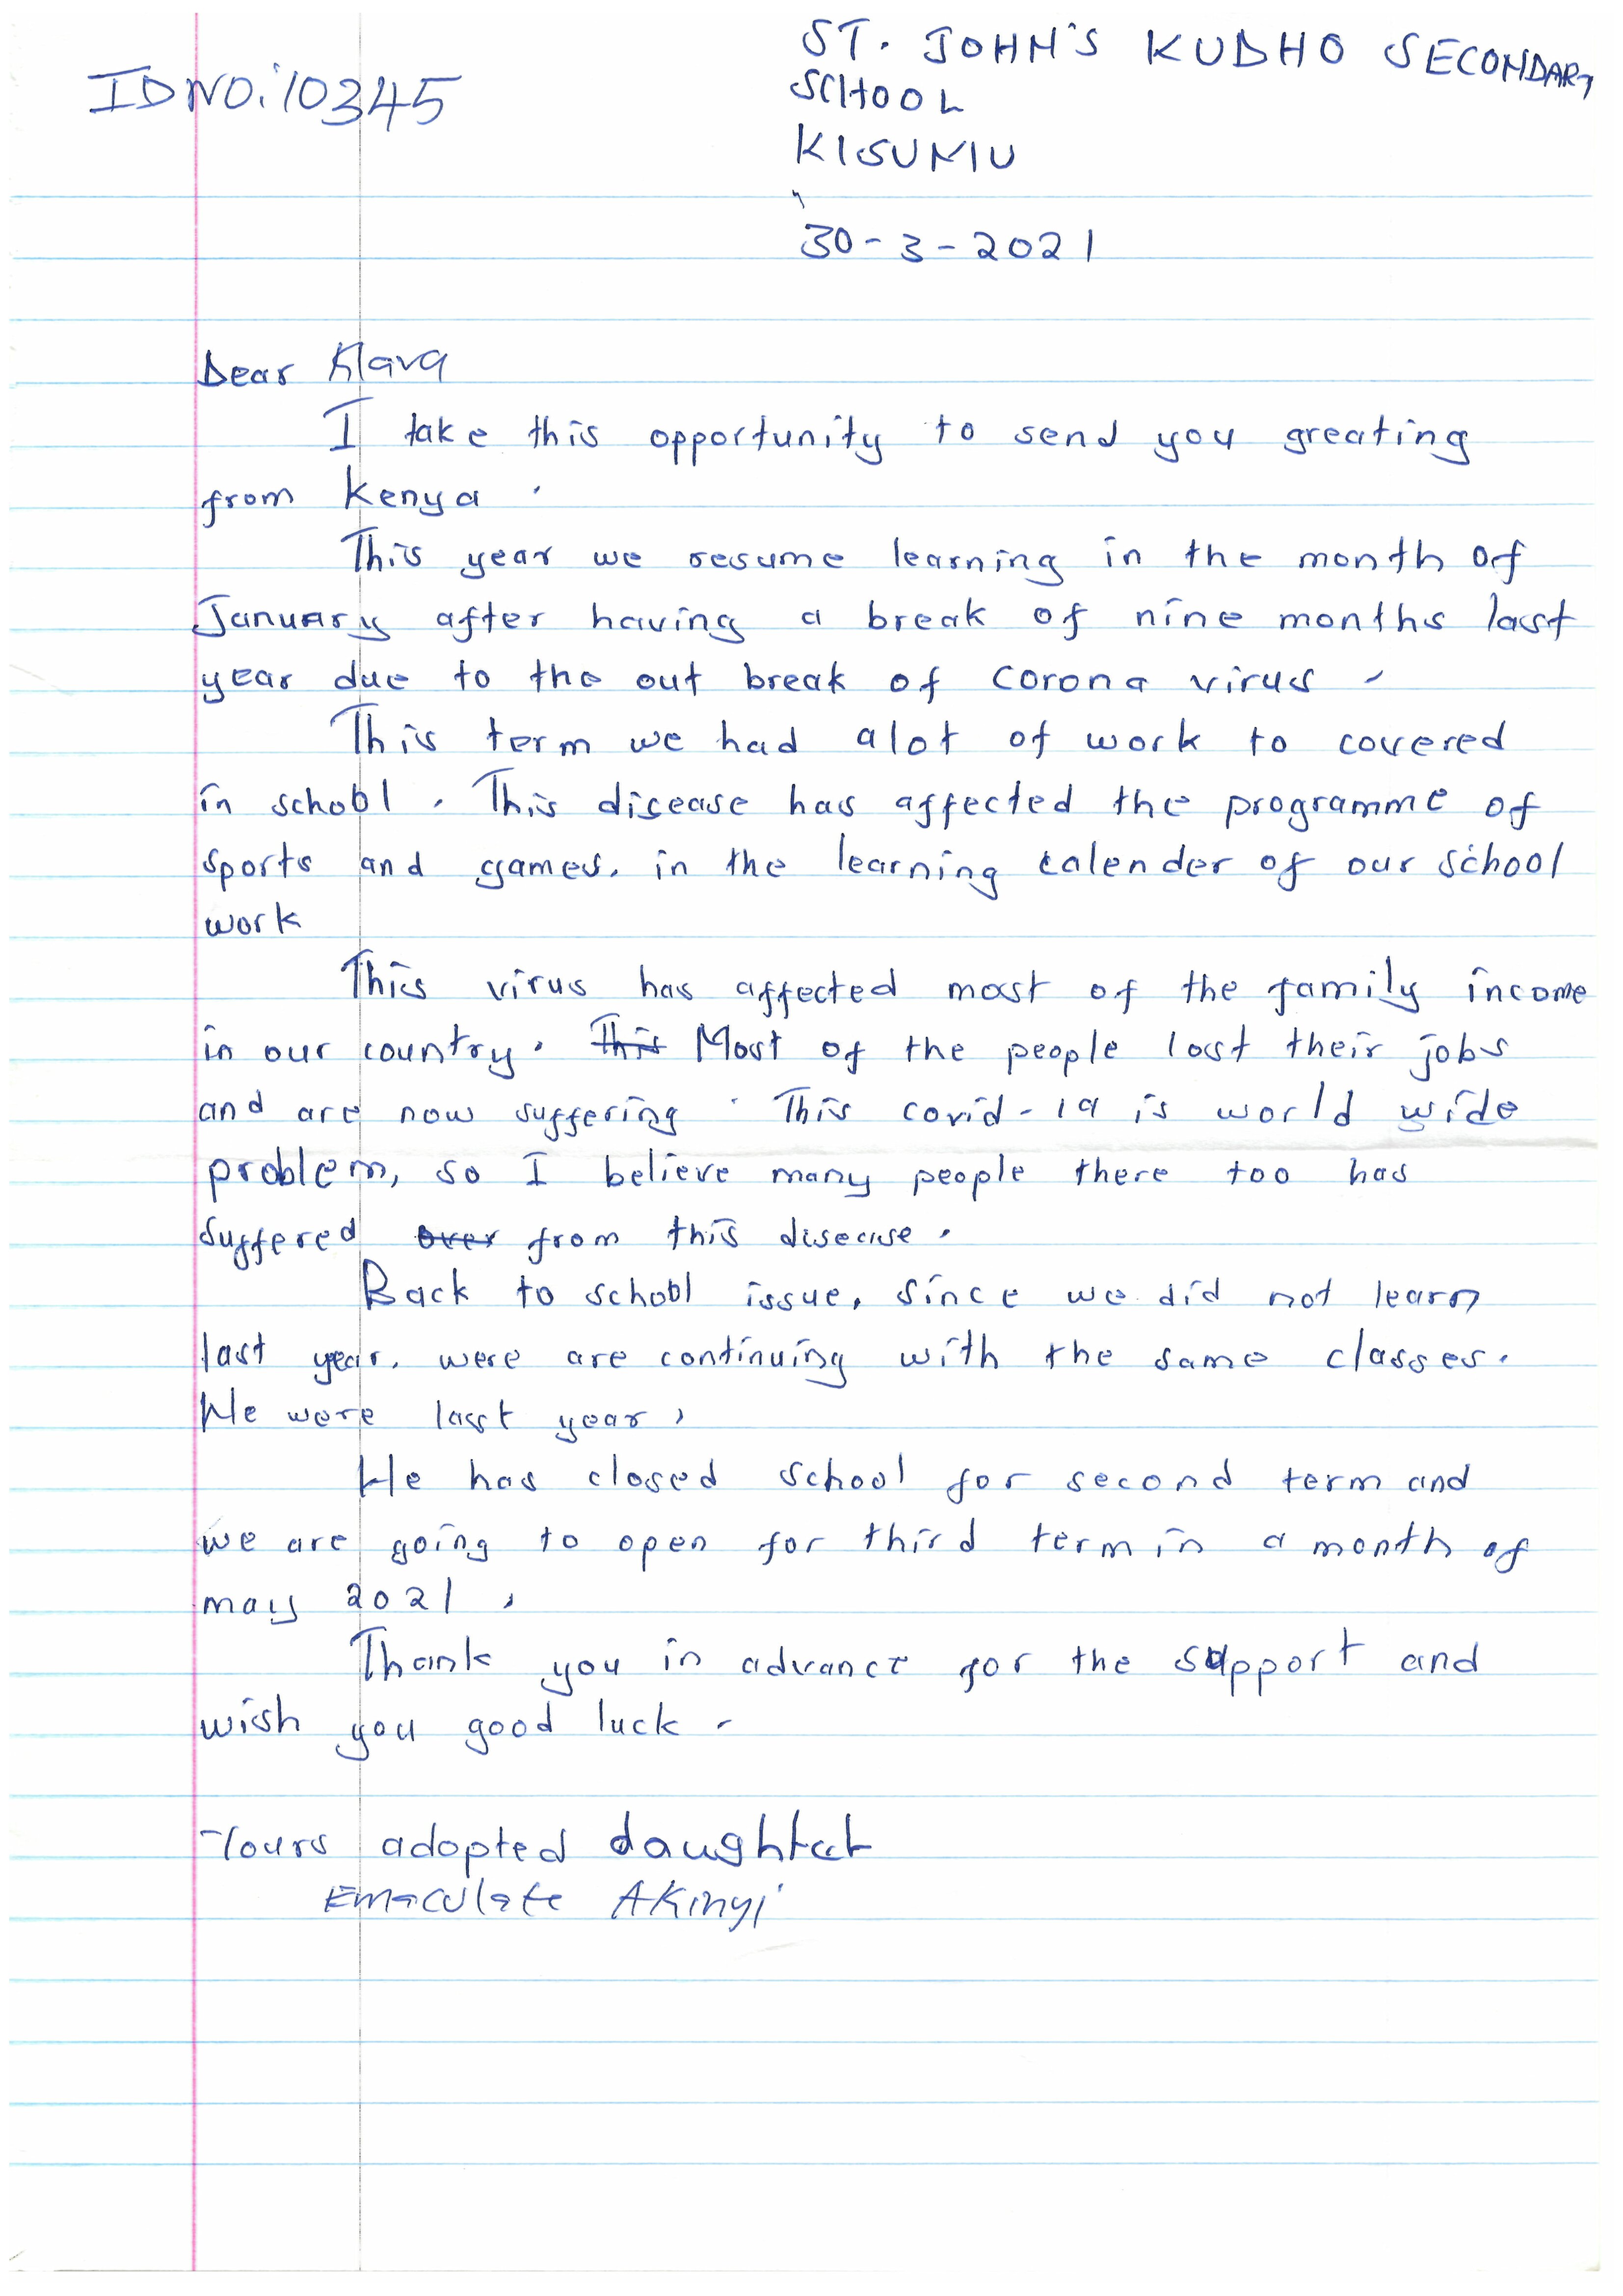 ST. JOHN'S KUDHO SECONDARY
IDNO:10345
SCHOOL
KISUMU
30-3-2021
Dear Klara
I take this opportunity to send you greating
from Kenya.
This year we resume learning in the month of
January after having a break of nine months last
year due to the out break of corona virus.
This term we had alot of work to covered
in school. This disease has affected the programme of
sports and games. in the learning calender of our school
work
This virus has affected most of the family income
in our country. This Most of the people lost their jobs
and are now suffering. This covid-19 is world wide
problem, so I believe many people there too has
suffered over from this disease.
Back to school issue, since we did not learn
last year. were are continuing with the same classes.
We were last year,
We has closed school for second term and
we are going to open for third term in a month of
may 2021,
Thank you in advance for the support and
wish you good luck.
Yours adopted daughter
Emaculate Akinyi